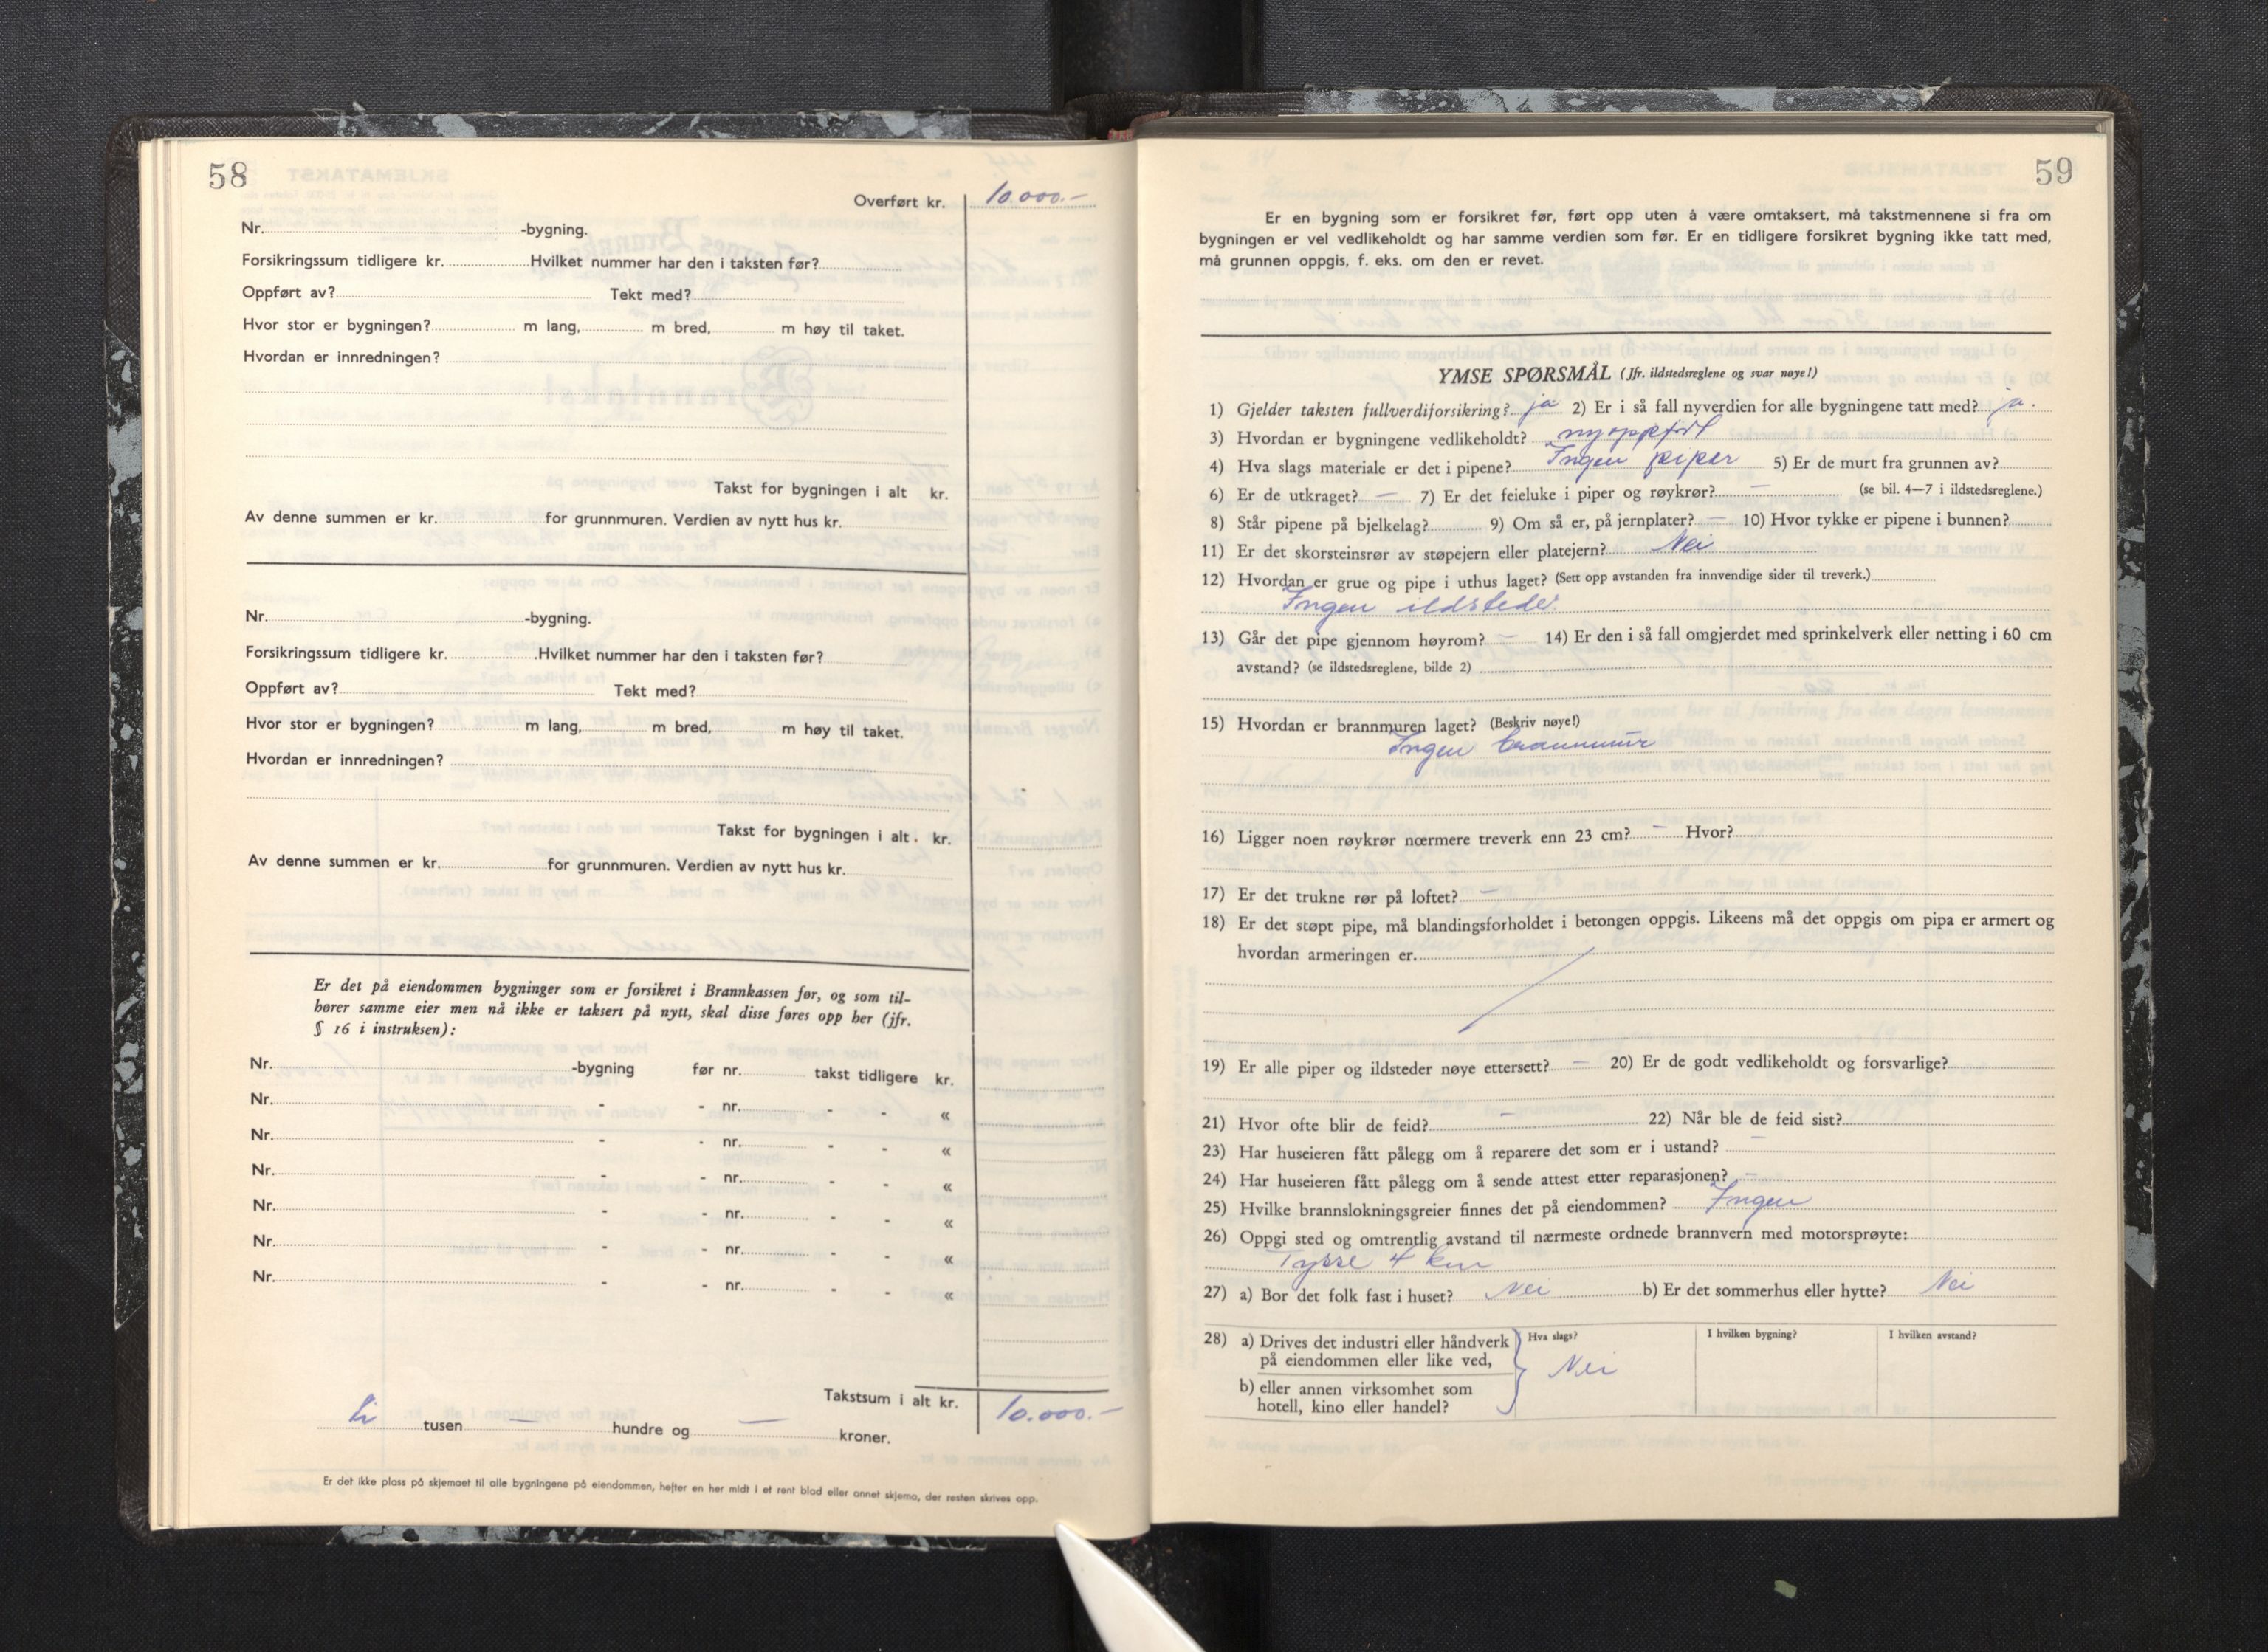 58
Overført kr. 10.000.-
Nr. -bygning.
Forsikringssum tidligere kr. Hvilket nummer har den i taksten før?
Oppført av? Tekt med?
Hvor stor er bygningen? m lang, m bred, m høy til taket.
Hvordan er innredningen?
Takst for bygningen i alt kr.
Av denne summen er kr. for grunnmuren. Verdien av nytt hus kr.
Nr. -bygning.
Forsikringssum tidligere kr. Hvilket nummer har den i taksten før?
Oppført av? Tekt med?
Hvor stor er bygningen? m lang, m bred, m høy til taket.
Hvordan er innredningen?
Takst for bygningen i alt. kr.
Av denne summen er kr. for grunnmuren. Verdien av nytt hus kr.
Er det på eiendommen bygninger som er forsikret i Brannkassen før, og som til-
hører samme eier men nå ikke er taksert på nytt, skal disse føres opp her (jfr.
§ 16 i instruksen):
Nr. -bygning før nr. takst tidligere kr.
Nr. - - nr. - - «
Nr. - - nr. - - «
Nr. - - nr. - - «
Nr. - - nr. - - «
Nr. - - nr. - - «
Nr. - - nr. - - «
Takstsum i alt kr. 10.000.-
Ti tusen — hundre og — kroner.
Er det ikke plass på skjemaet til alle bygningene på eiendommen, hefter en her midt i et rent blad eller annet skjema, der resten skrives opp.
59
Er en bygning som er forsikret før, ført opp uten å være omtaksert, må takstmennene si fra om
bygningen er vel vedlikeholdt og har samme verdien som før. Er en tidligere forsikret bygning ikke tatt med,
må grunnen oppgis, f. eks. om den er revet.
YMSE SPØRSMÅL (Jfr. ildstedsreglene og svar nøye!)
1) Gjelder taksten fullverdiforsikring? ja 2) Er i så fall nyverdien for alle bygningene tatt med? ja.
3) Hvordan er bygningene vedlikeholdt? nyoppført
4) Hva slags materiale er det i pipene? Ingen piper 5) Er de murt fra grunnen av?
6) Er de utkraget? — 7) Er det feieluke i piper og røykrør? — (se bil. 4—7 i ildstedsreglene.)
8) Står pipene på bjelkelag? 9) Om så er, på jernplater? — 10) Hvor tykke er pipene i bunnen?
11) Er det skorsteinsrør av støpejern eller platejern? Nei
12) Hvordan er grue og pipe i uthus laget? (Sett opp avstanden fra innvendige sider til treverk.)
Ingen ildsteder.
13) Går det pipe gjennom høyrom? — 14) Er den i så fall omgjerdet med sprinkelverk eller netting i 60 cm
avstand? (se ildstedsreglene, bilde 2)
15) Hvordan er brannmuren laget? (Beskriv nøye!)
Ingen brannmur
16) Ligger noen røykrør nærmere treverk enn 23 cm? — Hvor?
17) Er det trukne rør på loftet? —
18) Er det støpt pipe, må blandingsforholdet i betongen oppgis. Likeens må det oppgis om pipa er armert og
hvordan armeringen er.
19) Er alle piper og ildsteder nøye ettersett? — 20) Er de godt vedlikeholdt og forsvarlige?
21) Hvor ofte blir de feid? — 22) Når ble de feid sist?
23) Har huseieren fått pålegg om å reparere det som er i ustand? —
24) Har huseieren fått pålegg om å sende attest etter reparasjonen? —
25) Hvilke brannslokningsgreier finnes det på eiendommen? Ingen
26) Oppgi sted og omtrentlig avstand til nærmeste ordnede brannvern med motorsprøyte:
Tysse 4 km
27) a) Bor det folk fast i huset? Nei b) Er det sommerhus eller hytte? Nei
28) a) Drives det industri eller håndverk
på eiendommen eller like ved,
b) eller annen virksomhet som
hotell, kino eller handel?
Hva slags?
Nei
I hvilken bygning?
I hvilken avstand?